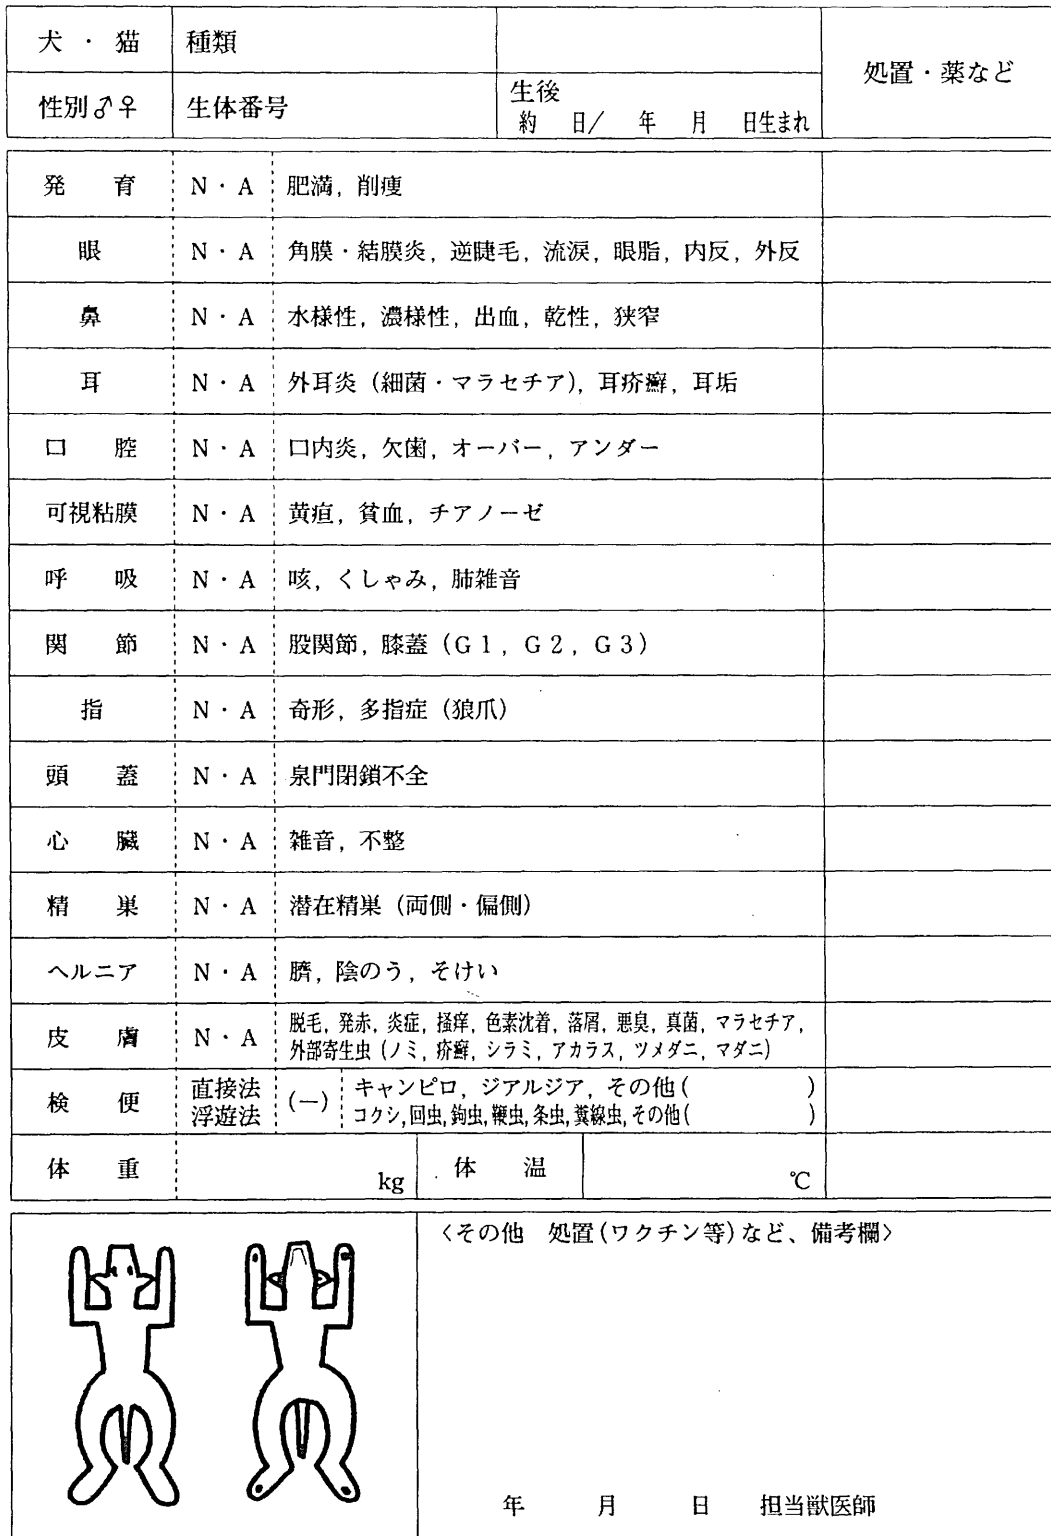 犬 ・ 猫 種類 処置・薬など
性別♂♀ 生体番号 生後
約 日/ 年 月 日生まれ
発 育 N・A 肥満, 削痩
眼 N・A 角膜・結膜炎, 逆睫毛, 流涙, 眼脂, 内反, 外反
鼻 N・A 水様性, 濃様性, 出血, 乾性, 狭窄
耳 N・A 外耳炎 (細菌・マラセチア), 耳疥癬, 耳垢
口 腔 N・A 口内炎, 欠歯, オーバー, アンダー
可視粘膜 N・A 黄疸, 貧血, チアノーゼ
呼 吸 N・A 咳, くしゃみ, 肺雑音
関 節 N・A 股関節, 膝蓋 (G1, G2, G3)
指 N・A 奇形, 多指症 (狼爪)
頭 蓋 N・A 泉門閉鎖不全
心 臓 N・A 雑音, 不整
精 巣 N・A 潜在精巣 (両側・偏側)
ヘルニア N・A 臍, 陰のう, そけい
皮 膚 N・A 脱毛, 発赤, 炎症, 掻痒, 色素沈着, 落屑, 悪臭, 真菌, マラセチア,
外部寄生虫 (ノミ, 疥癬, シラミ, アカラス, ツメダニ, マダニ)
検 便 直接法 (−) キャンピロ, ジアルジア, その他( )
浮遊法 コクシ,回虫,鉤虫,鞭虫,条虫,糞線虫,その他( )
体 重 kg 体 温 ℃
〈その他 処置(ワクチン等)など、備考欄〉
年 月 日 担当獣医師